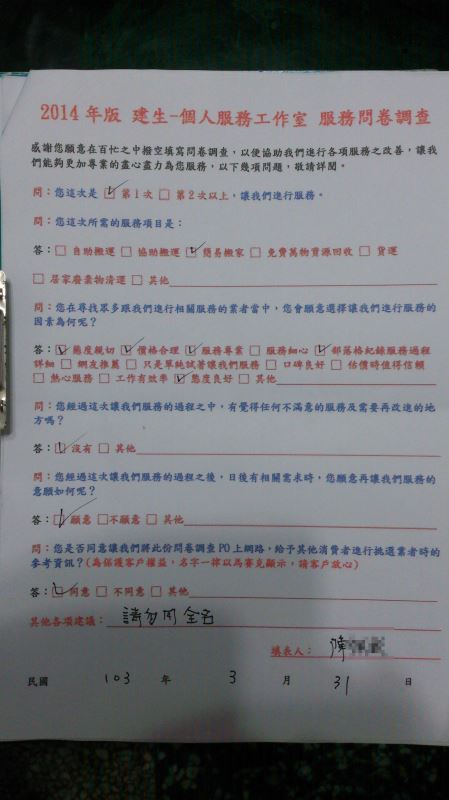 2014 年版 建生-個人服務工作室 服務問卷調查
感謝您願意在百忙之中撥空填寫問卷調查，以便協助我們進行各項服務之改善，讓我
們能夠更加專業的盡心盡力為您服務，以下幾項問題，敬請詳閱。
問：您這次是 ☑ 第1次 □ 第2次以上，讓我們進行服務。
問：您這次所需的服務項目是：
答：□ 自助搬運 □ 協助搬運 ☑ 簡易搬家 □ 免費萬物資源回收 □ 貨運
□ 居家廢棄物清運 □ 其他
問：您在尋找眾多跟我們進行相關服務的業者當中，您會願意選擇讓我們進行服務的
因素為何呢？
答：☑ 態度親切 ☑ 價格合理 ☑ 服務專業 □ 服務細心 ☑ 部落格紀錄服務過程
詳細 □ 網友推薦 □ 只是單純試著讓我們服務 □ 口碑良好 □ 估價時值得信賴
□ 熱心服務 □ 工作有效率 ☑ 態度良好 □ 其他
問：您經過這次讓我們服務的過程之中，有覺得任何不滿意的服務及需要再改進的地
方嗎？
答：☑ 沒有 □ 其他
問：您經過這次讓我們服務的過程之後，日後有相關需求時，您願意再讓我們服務的
意願如何呢？
答：☑ 願意 □不願意 □ 其他
問：您是否同意讓我們將此份問卷調查PO上網路，給予其他消費者進行挑選業者時的
參考資訊？(為保護客戶權益，名字一律以馬賽克顯示，請客戶放心)
答：☑ 同意 □ 不同意 □ 其他
其他各項建議：請勿用全名
填表人：陳
民國 103 年 3 月 31 日